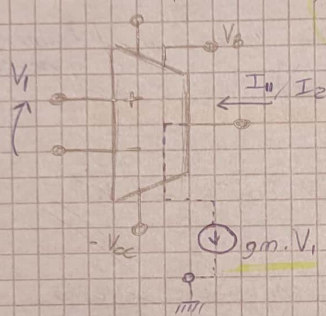 V_B
V_1
I_u / I_2
+
-
- V_cc
gm. V_1